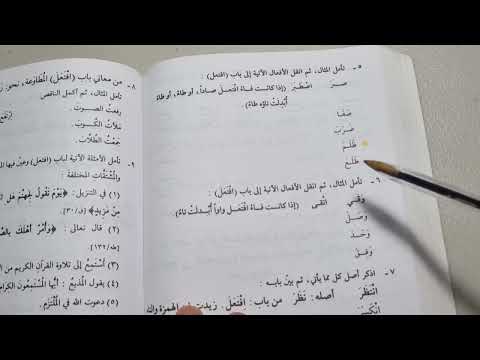 ٥ - تأمل المثال، ثم انقل الأفعال الآتية إلى باب (افتعل) :
صبر اصْطَبَرَ (إذا كانت فاءُ افْتَعَلَ صاداً، أو ضاداً، أو طاءً، أو ظاءً
أُبْدِلَتْ تاؤه طاءً)
صَفَا
ضَرَبَ
ظَلَمَ
طَلَعَ
٦ - تأمل المثال، ثم انقل الأفعال الآتية إلى باب (افْتَعَلَ) :
وَقَى اتَّقَى (إذا كانت فاءُ افْتَعَلَ واواً أُبْدِلَتْ تاءً)
وَصَلَ
وَحَدَ
وَفِقَ
٧ - اذكر أصل كل مما يأتي، ثم بيّن بابه :
انْتَظَرَ أصله : نَظَرَ من باب : افْتَعَلَ. زيدت الهمزة
انْكَسَرَ
٨ - من معاني باب (افْتَعَلَ) الْمُطَاوَعَة، نحو:
تأمل المثال، ثم أكمل الناقص
رفعتُ الصوت.
مَلأتُ الكوب.
جَمَعْتُ الطُّلَّاب.
٩ - تأمل الأمثلة الآتية لباب (افتعل) وعيّن فيها
والمشتقات المختلفة
(١) في التنزيل: ﴿يَوْمَ نَقُولُ لِجَهَنَّمَ هَلِ
مِنْ مَزِيدٍ﴾ (ق/٣٠).
(٢) قال تعالى : ﴿وَأْمُرْ أَهْلَكَ
(طه/١٣٢)
(٣) أَسْتَمِعُ إلى تلاوة القرآن الكريم من
(٤) يقول المذيع : أيها المُسْتَمِعُون الكرام
(٥) دعوت الله في المُلْتَزَمِ.